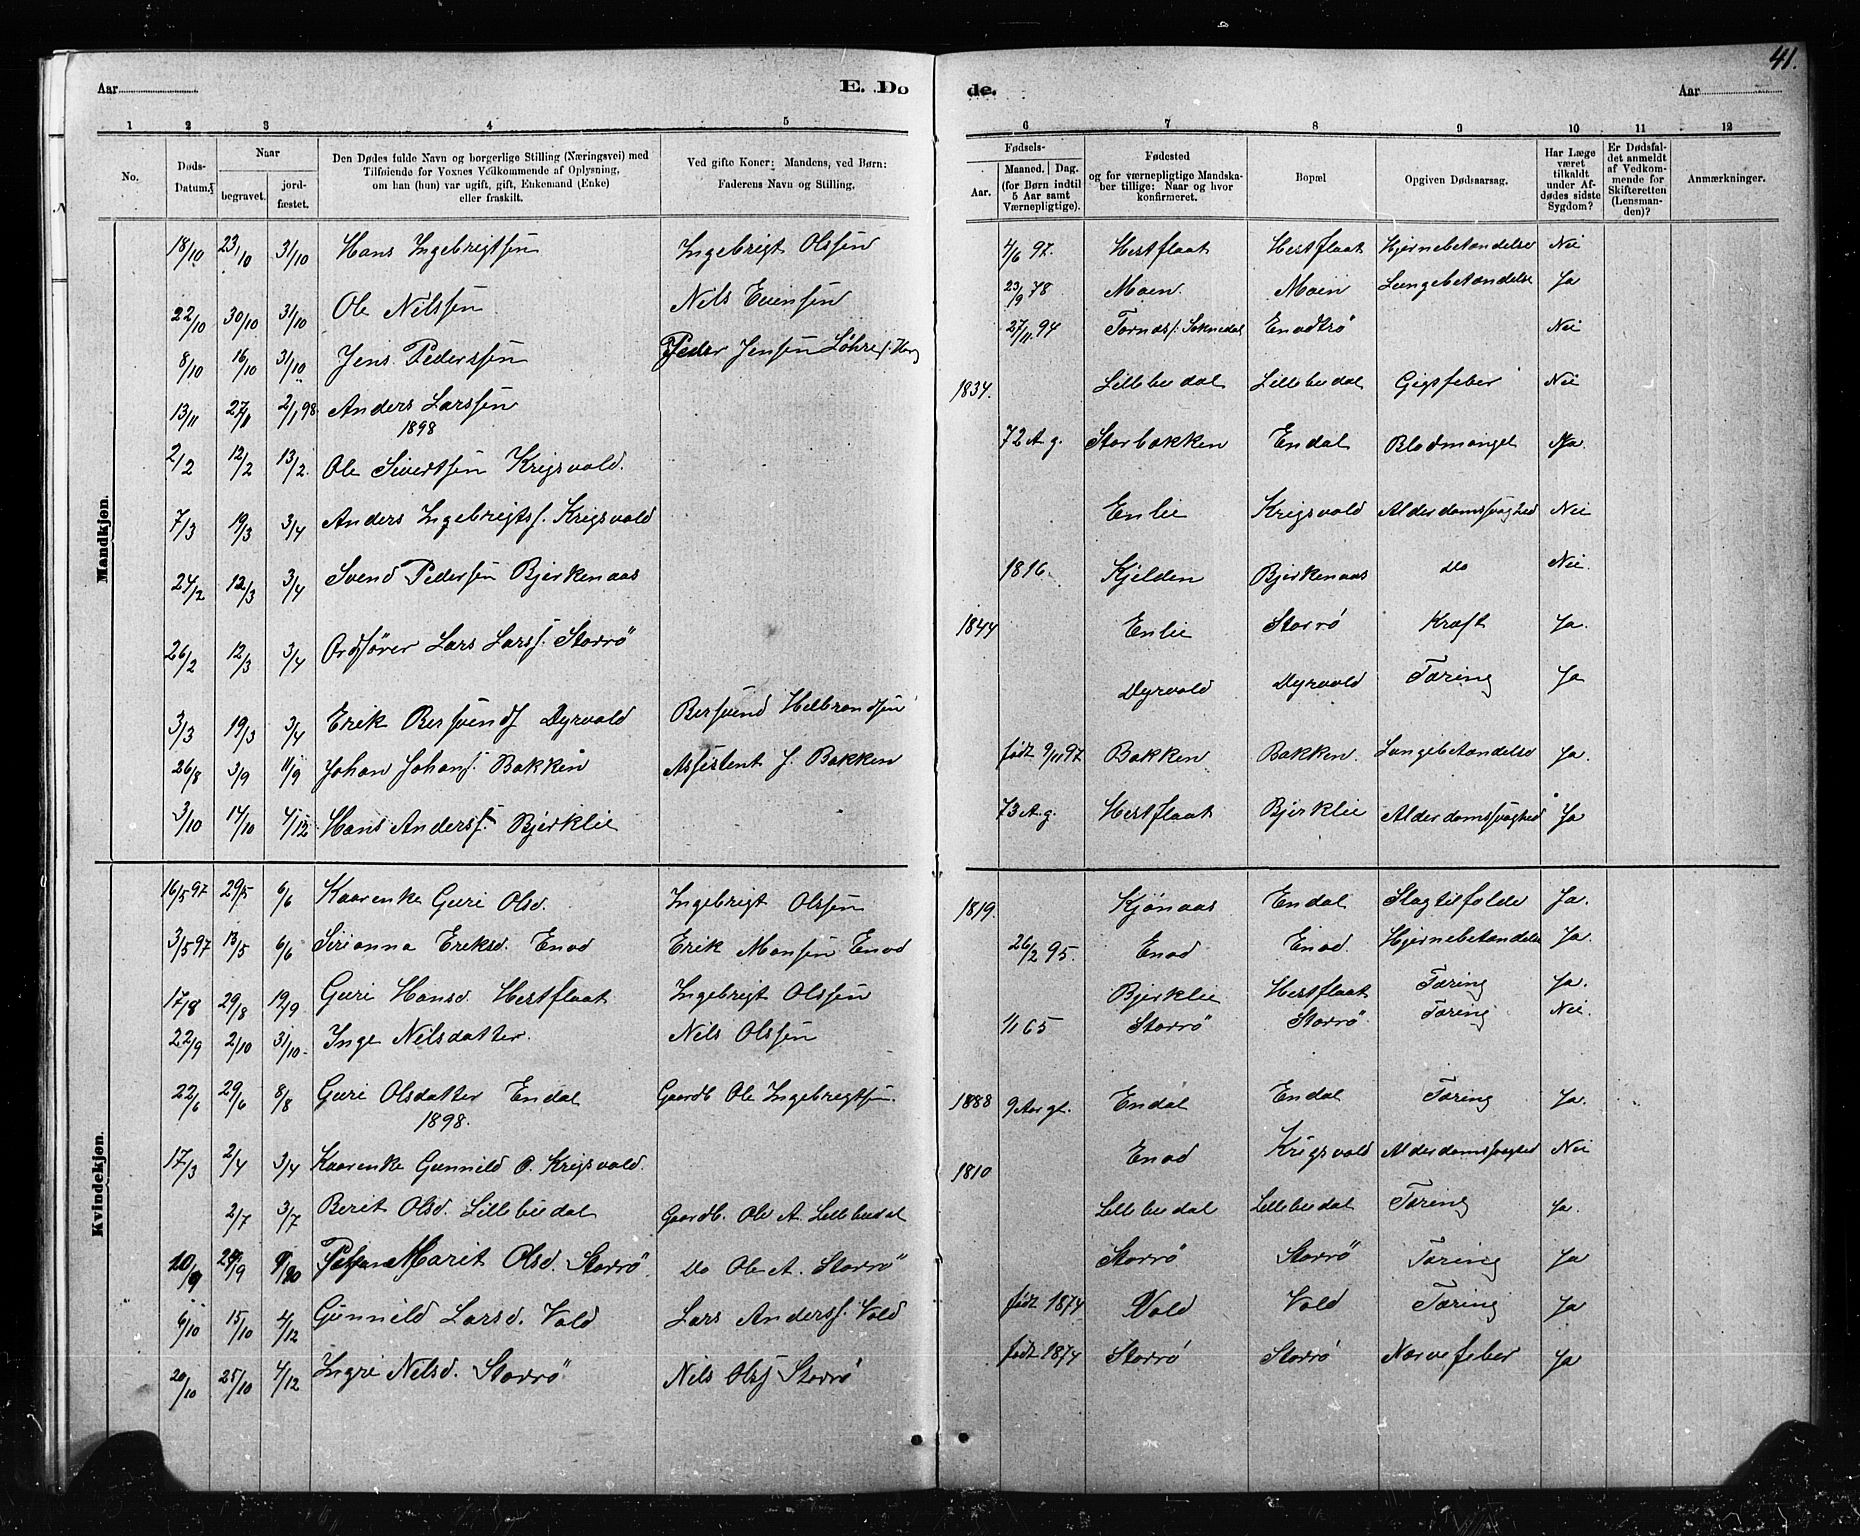 41.
Aar
E. Do
de.
Aar
1 2 3 4 5 6 7 8 9 10 11 12
No.
Døds-Datum.
Naar
begravet. jordfæstet.
Den Dødes fulde Navn og borgerlige Stilling (Næringsvei) med
Tilføiende for Voxnes Vedkommende af Oplysning,
om han (hun) var ugift, gift, Enkemand (Enke)
eller fraskilt.
Ved gifte Koner: Mandens, ved Børn:
Faderens Navn og Stilling.
Fødsels-
Aar. Maaned. Dag.
(for Børn indtil
5 Aar samt
Værnepligtige).
Fødested
og for værnepligtige Mandska-
ber tillige: Naar og hvor
konfirmeret.
Bopæl
Opgiven Dødsaarsag.
Har Læge
været
tilkaldt
under Af-
dødes sidste
Sygdom?
Er Dødsfal-
det anmeldt
af Vedkom-
mende for
Skifteretten
(Lensman-
den)?
Anmærkninger.
Mandkjøn.
18/10 23/10 31/10 Hans Ingebrigtsen Ingebrigt Olssen 4/6 97. Hestflaat Hestflaat Hjernebetændelse Nei
22/10 30/10 31/10 Ole Nilssen Nils Evensen 23/9 78 Moen. Moen Lungebetændelse Ja
8/10 16/10 31/10 Jens Pederssen Peder Jenssen Løhre 27/11 94 Soknedal Enodtrø Nei
13/11 27/11 2/1 98 Anders Larssen 1834. Lillebudal Lillebudal Gigtfeber Nei
1898
2/2 12/2 13/2. Ole Sivertsen Krigsvold. 72 A.g. Storbakken Endal Blodmangel Ja.
7/3 19/3 3/4 Anders Ingebrigts. Krigsvold Enlie Krigsvold Alderdomssvaghed Nei
24/2 12/3 3/4 Svend Pedersen Bjerkenaas 1816. Kjelden Bjerkenaas Do Nei.
26/2 12/3 3/4 Ordfører Lars Larss. Storrø 1844 Enlie Storrø Kræft Ja.
3/3 19/3 3/4 Erik Bersvends Dyrvold Bersvend Halbrandsen Dyrvold Dyrvold Tæring Ja
26/8 3/9 11/9 Johan Johans. Bakken Assistent J. Bakken født 9/11 97 Bakken Bakken. Lungebetændelse Ja.
3/10 14/10 4/12 Hans Anderss. Bjerklie 73 A.g. Hestflaat Bjerklie Alderdomssvaghed Ja
Kvindekjøn.
16/5 97 29/5 6/6 Kaarenke Guri Olsd. Ingebrigt Olssen 1819. Kjønaas Endal Slagtilfælde Ja.
3/5 97 13/5 6/6 Serianna Eriksd. Enod Erik Monsen Enod 26/2 95. Enod Enod. Hjernebetændelse Ja.
17/8 29/8 19/9 Guri Hansd. Hestflaat Ingebrigt Olssen Bjerklie Hestflaat Tæring Ja.
22/9 2/10 31/10. Inge Nilsdatter. Nils Olssen 1/1 65 Storrø Storrø. Tæring Nei.
22/6 29/6 8/8 Guri Olsdatter Endal Gaardb Ole Ingebrigtsen. 1888 9 Aar gl. Endal Endal Tæring Ja.
1898.
17/3 2/4 3/4 Kaarenke Gunnild O. Krigsvold. 1810 Enod Krigsvold Alderdomssvaghed Nei
2/7 3/7 Berit Olsd. Lillebudal Gaardb. Ole A. Lillebudal Lillebudal Lillebudal Tæring Ja.
Marit Olsd. Storrø. Do Ole A. Storrø Storrø Storrø Tæring Ja
6/10 15/10 4/12 Gunnild Larsd. Vold Lars Anderss. Vold født 1874 Vold Vold Tæring Ja
20/10 25/10 4/12 Ingri Nilsd. Storrø Nils Olss Storrø født 1874 Storrø Storrø Nervefeber Ja